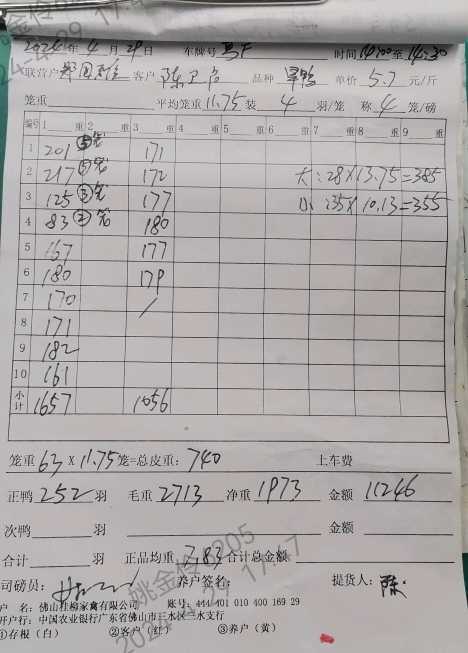 2024年4月29日 车牌号 马F 时间14:00至14:30
联营户 客户 陈卫右 品种 旱鸭 单价5.7元/斤
笼重 平均笼重11.75装4羽/笼 称4笼/磅
编号 1 重 2 重 3 重 4 重 5 重 6 重 7 重 8 重 9 重
1 201 ⑤笼 171
2 217 ⑤笼 172 大:28×13.75=385
3 125 ③笼 177 小:35×10.13=355
4 83 ②笼 180
5 167 177
6 180 179
7 170 /
8 171
9 182
10 161
小计 1657 1056
笼重63×11.75笼=总皮重:740 上车费
正鸭252羽 毛重2713 净重1973 金额11246
次鸭 羽 金额
合计 羽 正品均重7.83 合计总金额
司磅员: 养户签名: 提货人:陈
户 名:佛山桂柳家禽有限公司 账号:444 401 010 400 169 29
开户行:中国农业银行广东省佛山市三水区三水支行
①存根(白) ②客户(红) ③养户(黄)
姚金伶0805
2024-4-29 17:47